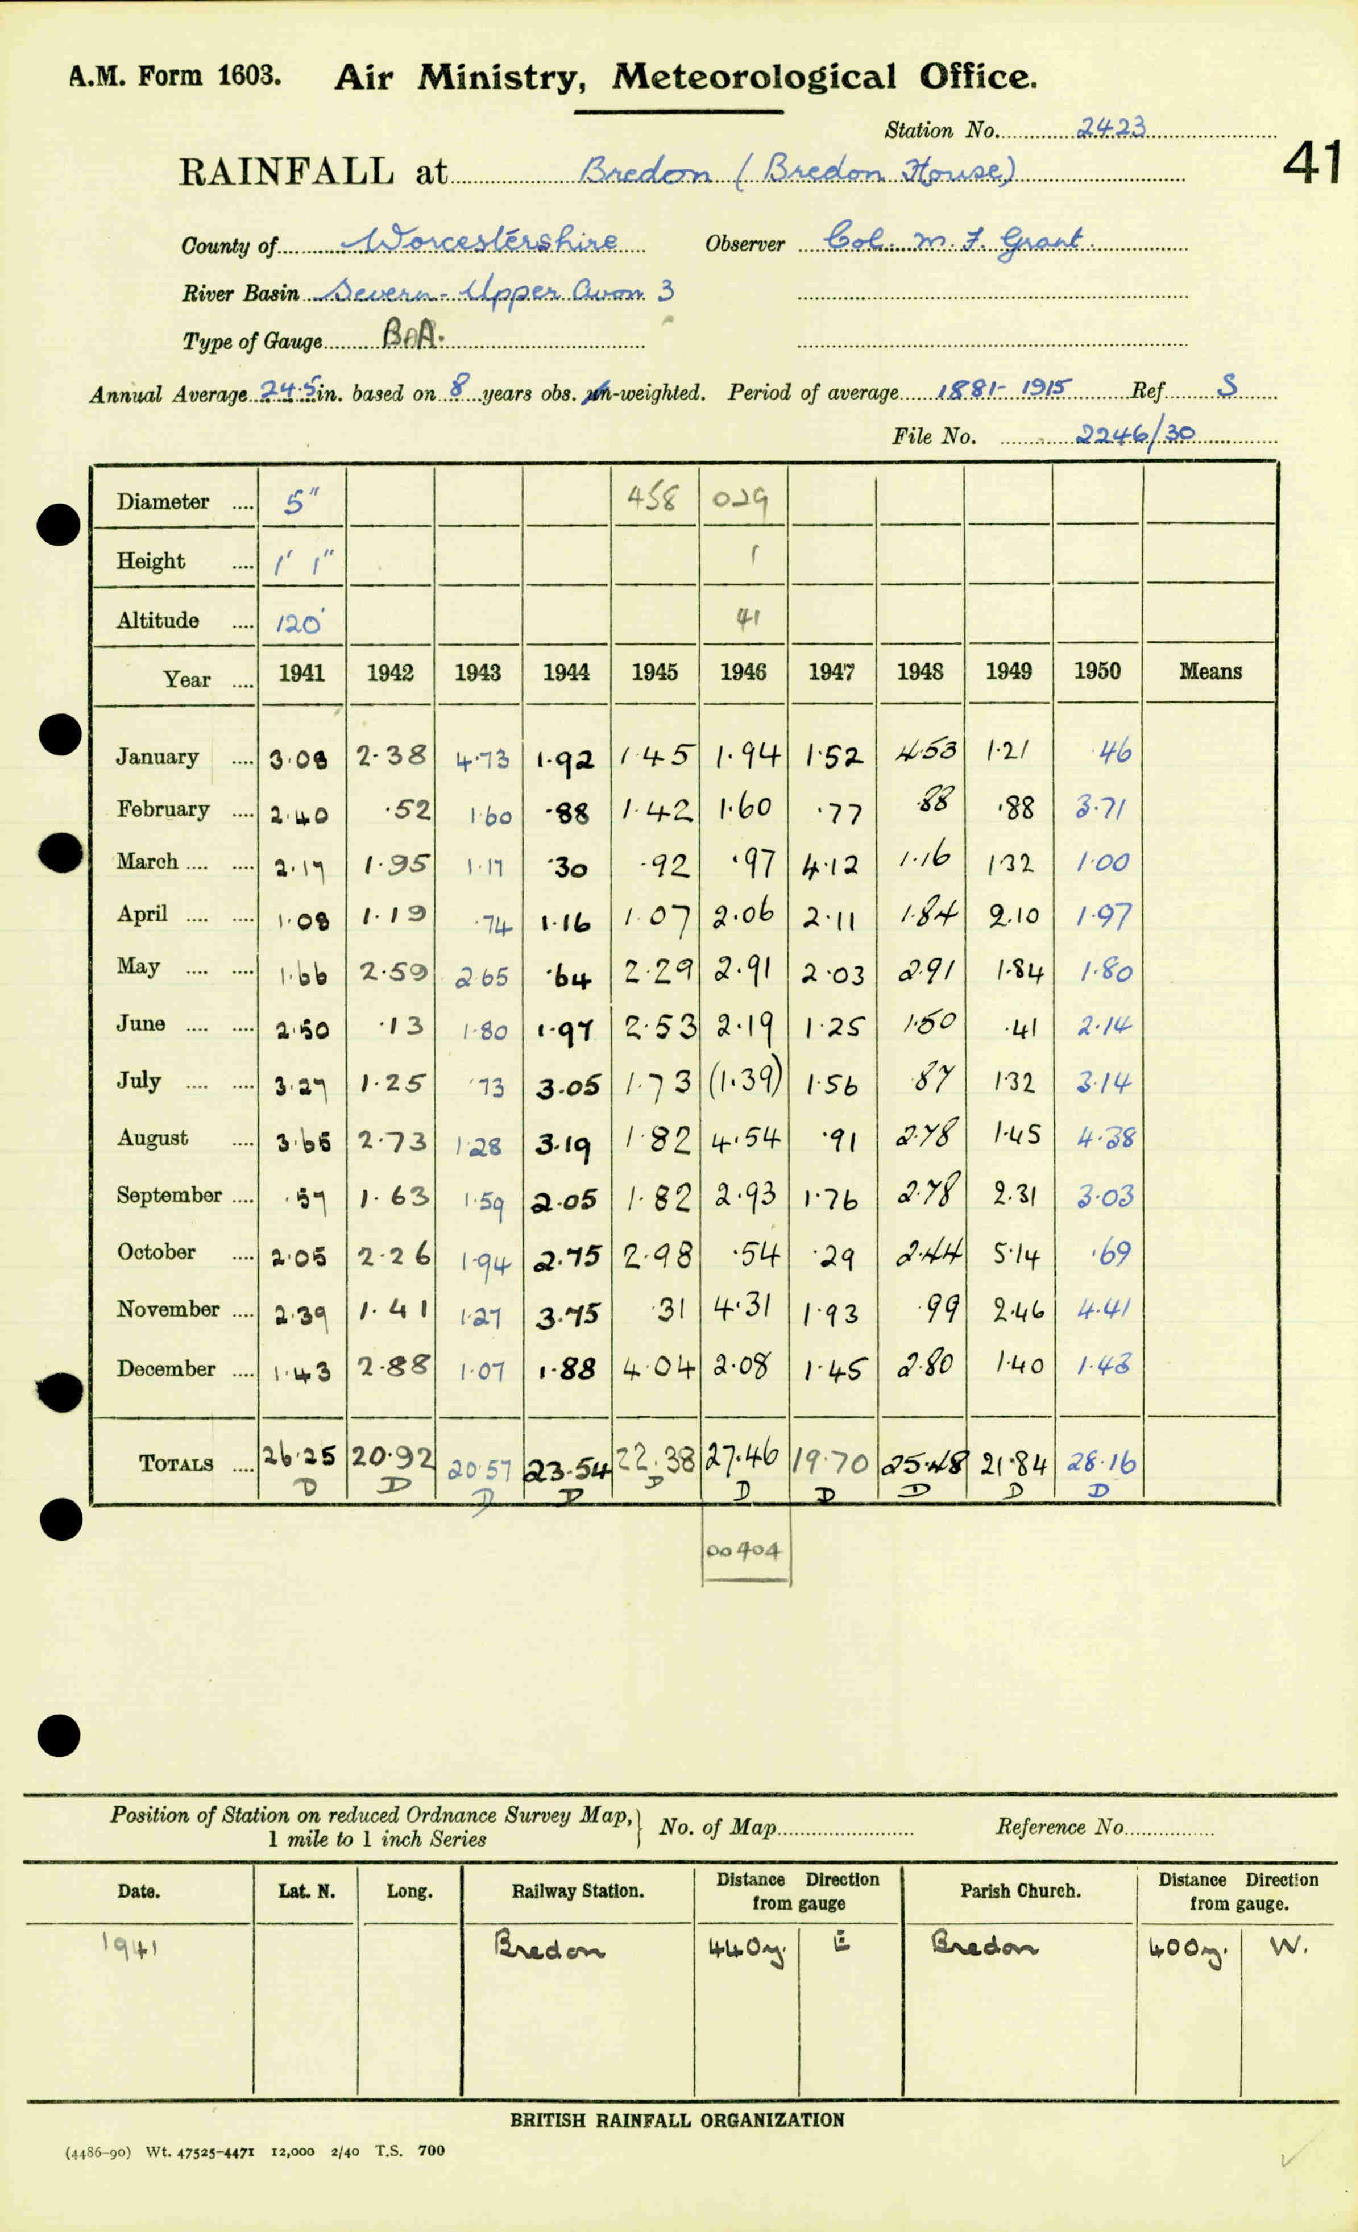 A.M. Form 1603. Air Ministry, Meteorological Office.
Station No. 2423
41
RAINFALL at Bredon (Bredon House)
County of Worcestershire Observer Col. M. F. Grant.
River Basin Severn - Upper Avon 3
Type of Gauge
Annual Average 24.5 in. based on 8 years obs. -weighted. Period of average 1881-1915 Ref. S
File No. 2246/30
Diameter .... 5" 458 029
Height .... 1' 1" 1
Altitude .... 120' 41
Year .... 1941 1942 1943 1944 1945 1946 1947 1948 1949 1950 Means
January .... 3.08 2.38 4.73 1.92 1.45 1.94 1.52 4.53 1.21 .46
February .... 2.40 .52 1.60 .88 1.42 1.60 .77 .88 .88 3.71
March .... .... 2.17 1.95 1.17 .30 .92 .97 4.12 1.16 1.32 1.00
April .... .... 1.08 1.19 .74 1.16 1.07 2.06 2.11 1.84 2.10 1.97
May .... .... 1.66 2.59 2.65 .64 2.29 2.91 2.03 2.91 1.84 1.80
June .... .... 2.50 .13 1.80 1.97 2.53 2.19 1.25 1.50 .41 2.14
July .... .... 3.27 1.25 .73 3.05 1.73 (1.39) 1.56 .87 1.32 3.14
August .... 3.65 2.73 1.28 3.19 1.82 4.54 .91 2.78 1.45 4.38
September .... .57 1.63 1.59 2.05 1.82 2.93 1.76 2.78 2.31 3.03
October .... 2.05 2.26 1.94 2.75 2.98 .54 .29 2.44 5.14 .69
November .... 2.39 1.41 1.27 3.75 .31 4.31 1.93 .99 2.46 4.41
December .... 1.43 2.88 1.07 1.88 4.04 2.08 1.45 2.80 1.40 1.43
TOTALS .... 26.25 20.92 20.57 23.54 22.38 27.46 19.70 25.48 21.84 28.16
D D D D D D D D D D
00404
Position of Station on reduced Ordnance Survey Map, 1 mile to 1 inch Series } No. of Map Reference No.
Date. Lat. N. Long. Railway Station. Distance Direction from gauge Parish Church. Distance Direction from gauge.
1941 Bredon 440y. E Bredon 400y. W.
BRITISH RAINFALL ORGANIZATION
(4486-90) Wt. 47525-4471 12,000 2/40 T.S. 700